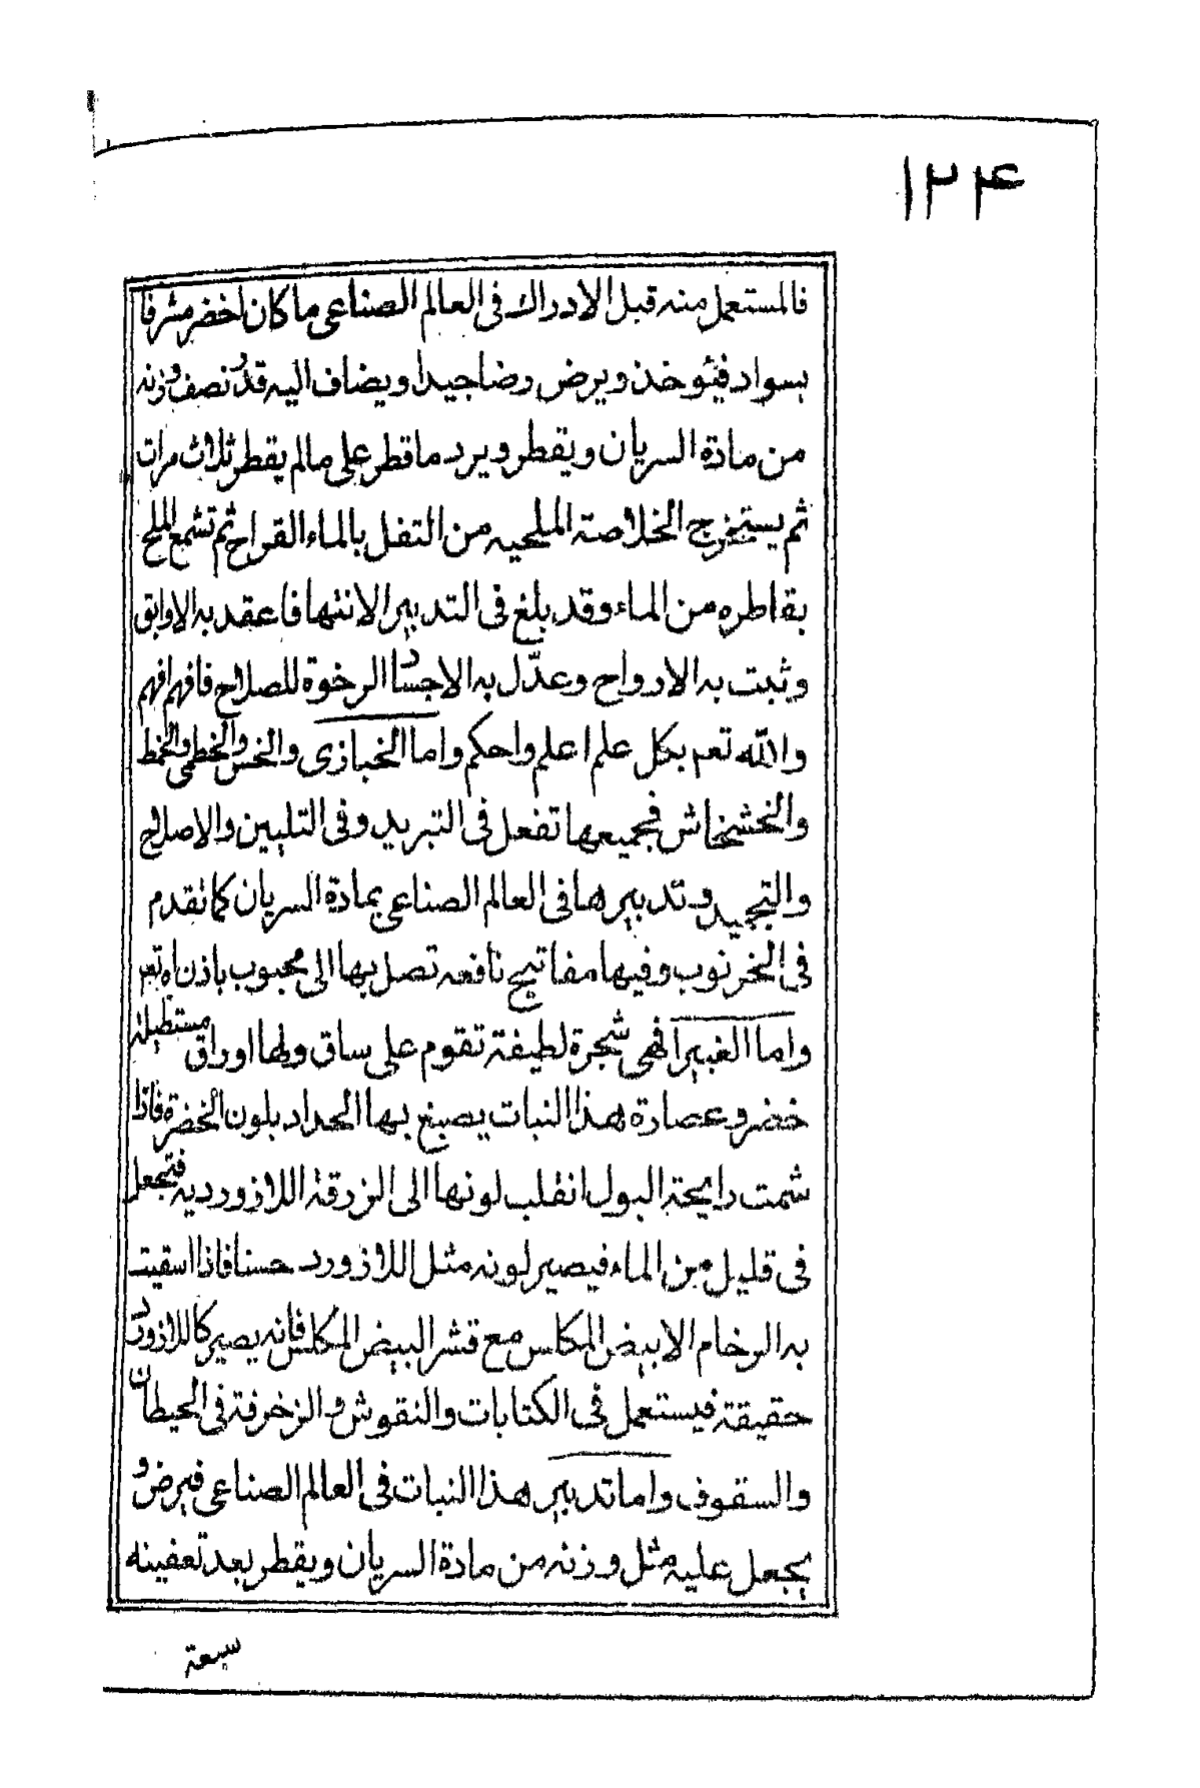 ١٢۴
فالمستعمل منه قبل الادراك فى العالم الصناعى ما كان اخضر مشرفا
بسواد فيؤخذ ويرض رضا جيدا ويضاف اليه قدر نصف وزنه
من مادة السريان ويقطر ويرد ما قطر على مالم يقطر ثلاث مرات
ثم يستخرج الخلاصة الملحيه من التفل بالماء القراح ثم تشمع الملح
بقاطره من الماء وقد بلغ فى التدبير الانتها فاعقد به الاوابق
وثبت به الارواح وعدّل به الاجساد الرخوة للصلاح فافهم افهم
والله تعم بكل علم اعلم واحكم واما الخبازى والخس والخطمى والخمط
والخشخاش فجميعها تفعل فى التبريد وفى التليين والاصلاح
والتجميد وتدبيرها فى العالم الصناعى بمادة السريان كما تقدم
فى الخرنوب وفيها مفاتيح نافعه تصل بها الى محبوب باذن اه تعم
واما الغبيرا فهى شجرة لطيفة تقوم على ساق ولها اوراق مستطيلة
خضر وعصارة هذا النبات يصبغ بها الحداد بلون الخضرة فاذا
شمت رايحة البول انقلب لونها الى الزرقة اللازورديه فتجعل
فى قليل من الماء فيصير لونه مثل اللازورد حسنا فاذا اسقيت
به الرخام الابيض المكلس مع قشر البيض المكلس فانه يصير كاللازورد
حقيقة فيستعمل فى الكتابات والنقوش والزخرفة فى الحيطان
والسقوف واما تدبير هذا النبات فى العالم الصناعى فيرض و
يجعل عليه مثل وزنه من مادة السريان ويقطر بعد تعفينه
سبعة